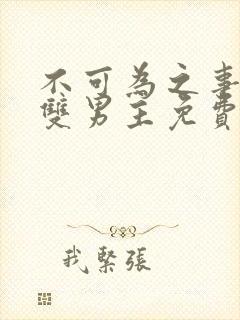 不可為之事
雙男主免費
我緊張